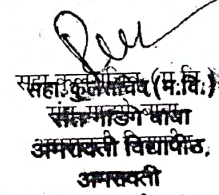 सहा. कुलसचिव (म.वि.)
संत गाडगे बाबा
अमरावती विद्यापीठ,
अमरावती